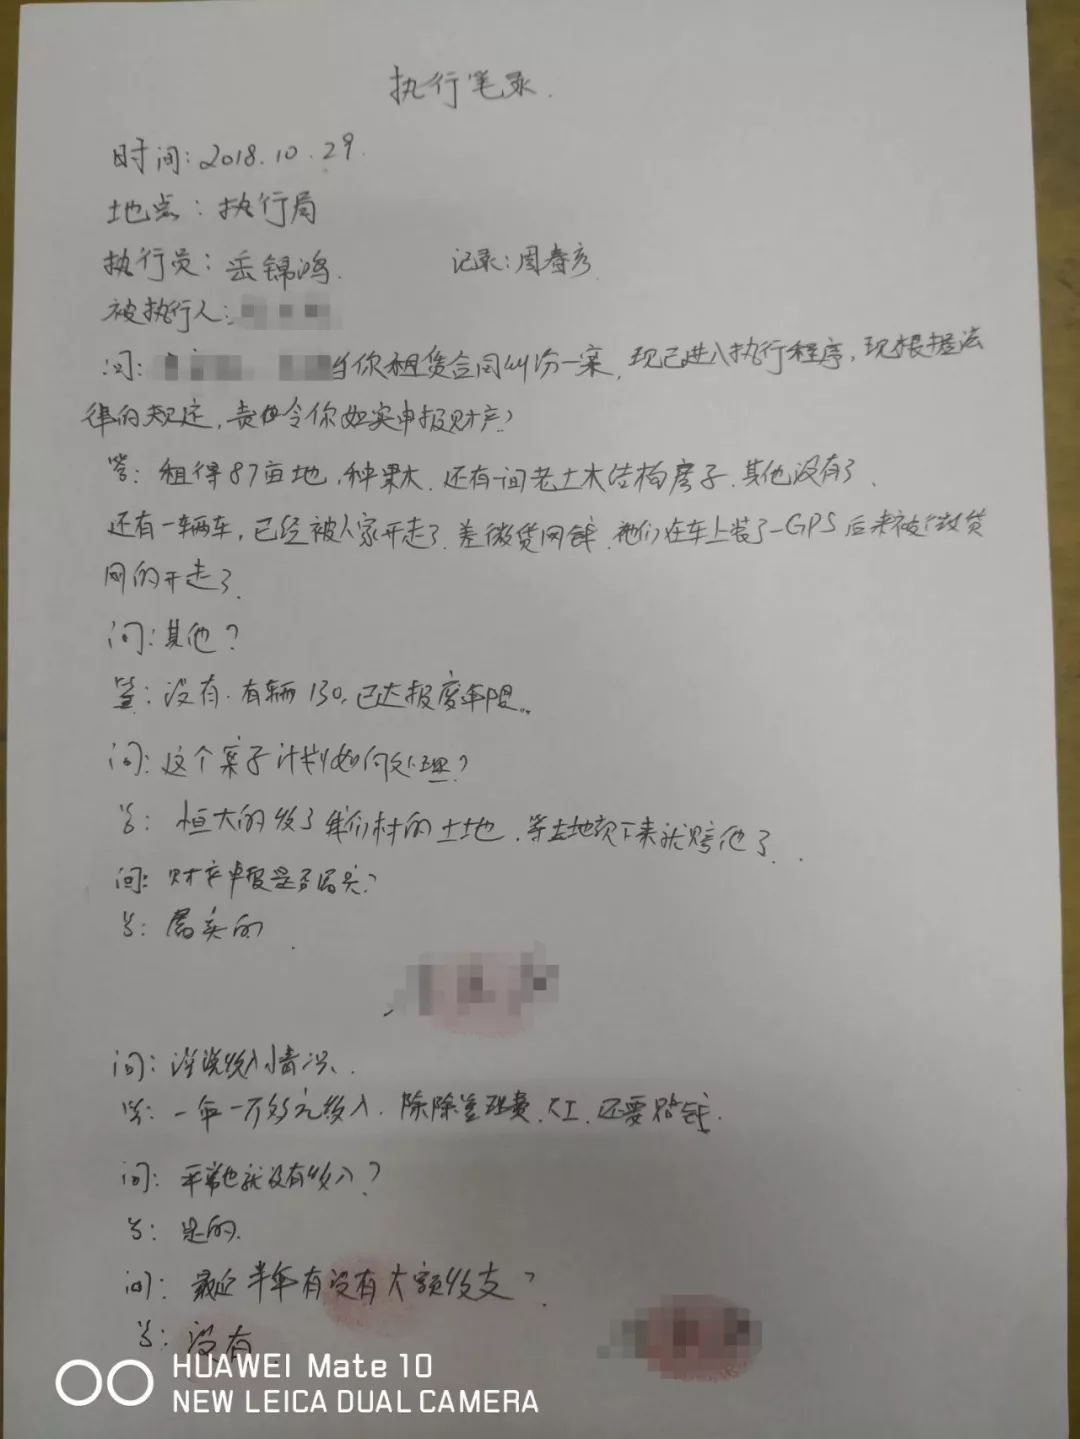 执行笔录.
时间:2018.10.29.
地点:执行局
执行员:岳锦鸿. 记录:周春彦
被执行人:
问: 当你租赁合同纠纷一案,现已进入执行程序,现根据法
律的规定,责令你如实申报财产?
答:租得87亩地,种果木.还有一间老土木结构房子.其他没有了.
还有一辆车,已经被人家开走了.差微贷网钱.他们在车上装了一GPS后来被微贷
网的开走了.
问:其他?
答:没有.有辆130,已达报废年限..
问:这个案子计划如何处理?
答:恒大的收了我们村的土地,等土地款下来就赔他了..
问:财产申报是否属实?
答:属实的.
问:说说收入情况.
答:一年一万多元收入.除除管理费、人工,还要贴钱.
问:平常也就没有收入?
答:是的.
问:最近半年有没有大额收支?
答:没有
HUAWEI Mate 10
NEW LEICA DUAL CAMERA